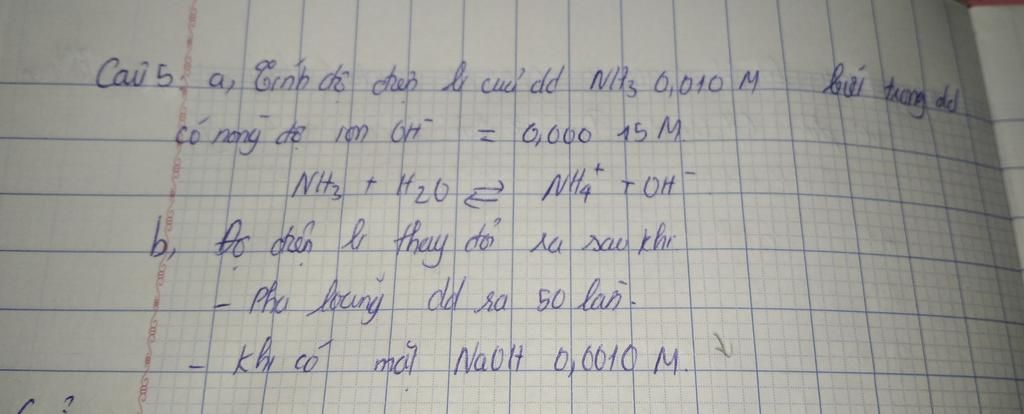 Câu 5. a, Tính độ điện li của dd NH3 0,010 M biết trong dd
có nồng độ ion OH⁻ = 0,000 15 M.
NH3 + H2O ⇌ NH4⁺ + OH⁻
b, Độ điện li thay đổi ra sao khi
- Pha loãng dd ra 50 lần.
- Khi có mặt NaOH 0,0010 M.